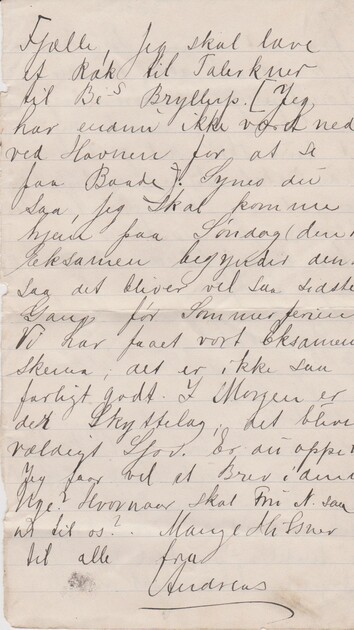 Fjælle, Jeg skal lave
et Rak til Talerkner
til Be's Bryllup. [Jeg
har endnu ikke været ned
ved Havnen for at se
paa Baade]. Synes du
saa, jeg skal komme
hjem paa Søndag (den
Eksamen begynder den
saa det bliver vel saa sidste
Gang før Sommerferien
Vi har faaet vort Eksamen
skema, det er ikke saa
farligt godt. I Morgen er
det Skyttelag, det blive
vældigt Sjov. Er du oppe
Jeg faar vel et Brev i den
Uge? Hvornaar skal Fru N. saa
til os? Mange Hilsner
til alle fra
Andreas